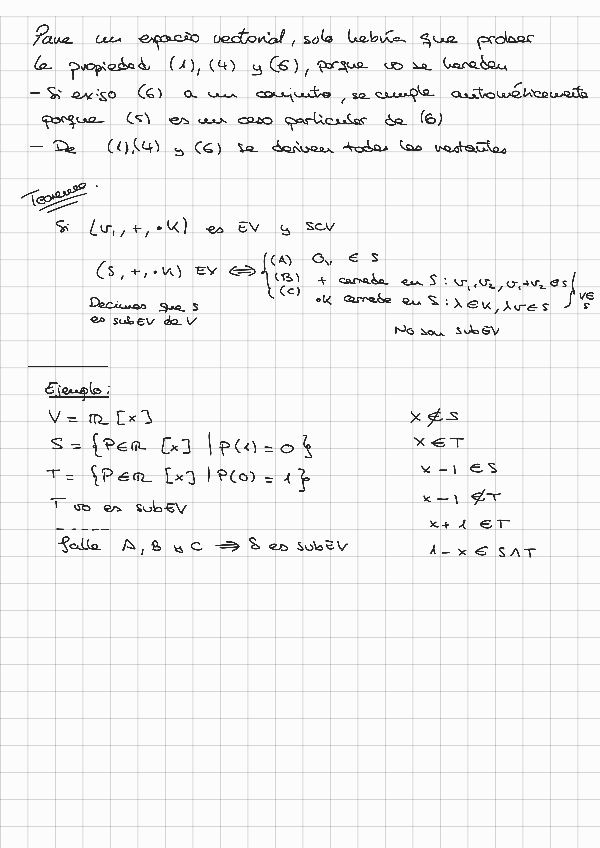 Para un espacio vectorial, solo habría que probar
la propiedad (1), (4) y (6), porque no se heredan
- Si exijo (6) a un conjunto, se cumple automáticamente
porque (5) es un caso particular de (6)
- De (1),(4) y (6) se derivan todas las restantes
Teorema.
Si (V, +, ·K) es EV y S⊂V
(S, +, ·K) EV ⟺ { (A) 0ᵥ ∈ S
(B) + cerrada en S: v₁, v₂, v₁+v₂ ∈ S
(C) ·K cerrada en S: λ ∈ K, λv ∈ S } v∈S
Decimos que S
es subEV de V
No son subEV
Ejemplo:
V = ℝ [x]
S = {P∈ℝ [x] | P(1) = 0}
T = {P∈ℝ [x] | P(0) = 1}
T no es subEV
falla A, B y C ⟹ S es subEV
x ∉ S
x ∈ T
x - 1 ∈ S
x - 1 ∉ T
x + 1 ∈ T
1 - x ∈ S ∧ T